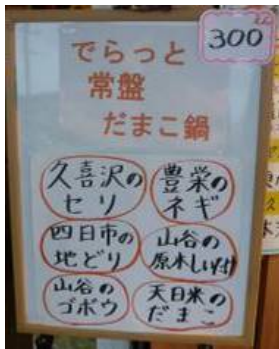 300
でらっと
常盤
だまこ鍋
久喜沢の
セリ
豊栄の
ネギ
四日市の
地どり
山谷の
原木しいたけ
山谷の
ゴボウ
天日米の
だまこ